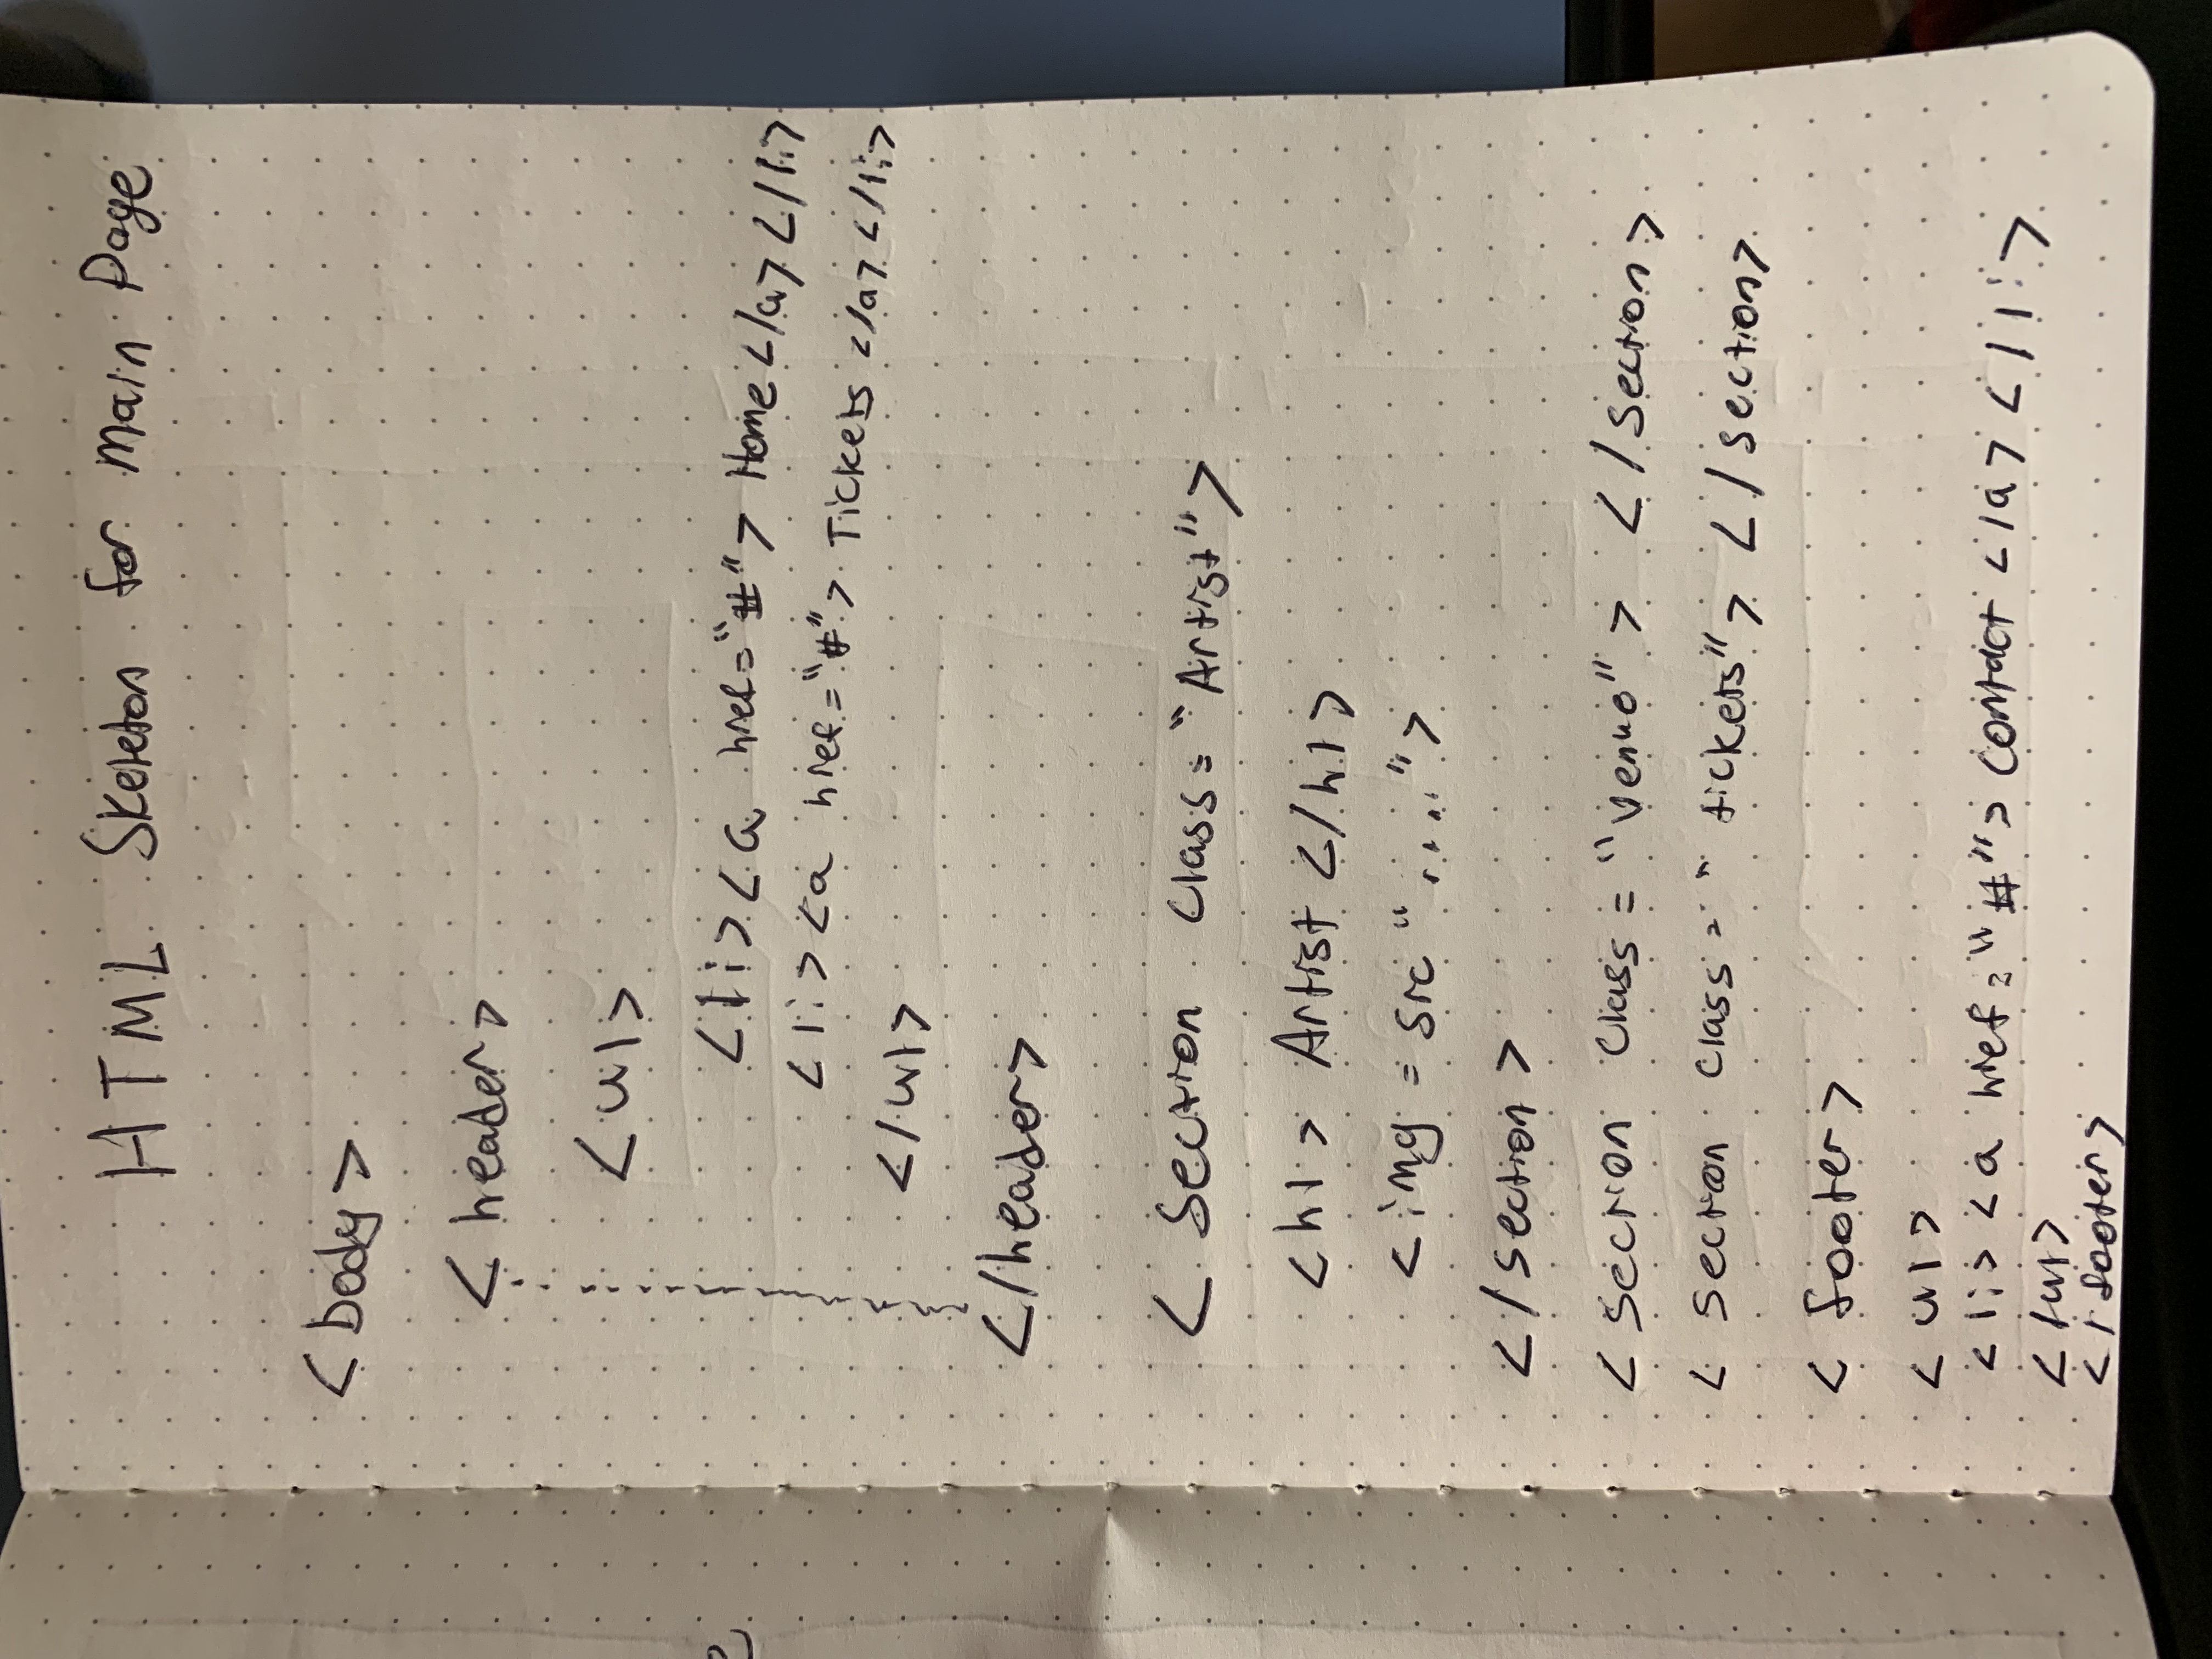 HTML Skeleton for Main Page
<body>
<header>
<ul>
<li><a href="#"> Home </a> </li>
<li><a href="#"> Tickets </a> </li>
</ul>
</header>
<section class="Artist">
<h1> Artist </h1>
<img = src "....">
</section>
<section class="venue"> </section>
<section class="tickets"> </section>
<footer>
<ul>
<li><a href="#"> contact </a> </li>
</ul>
</footer>